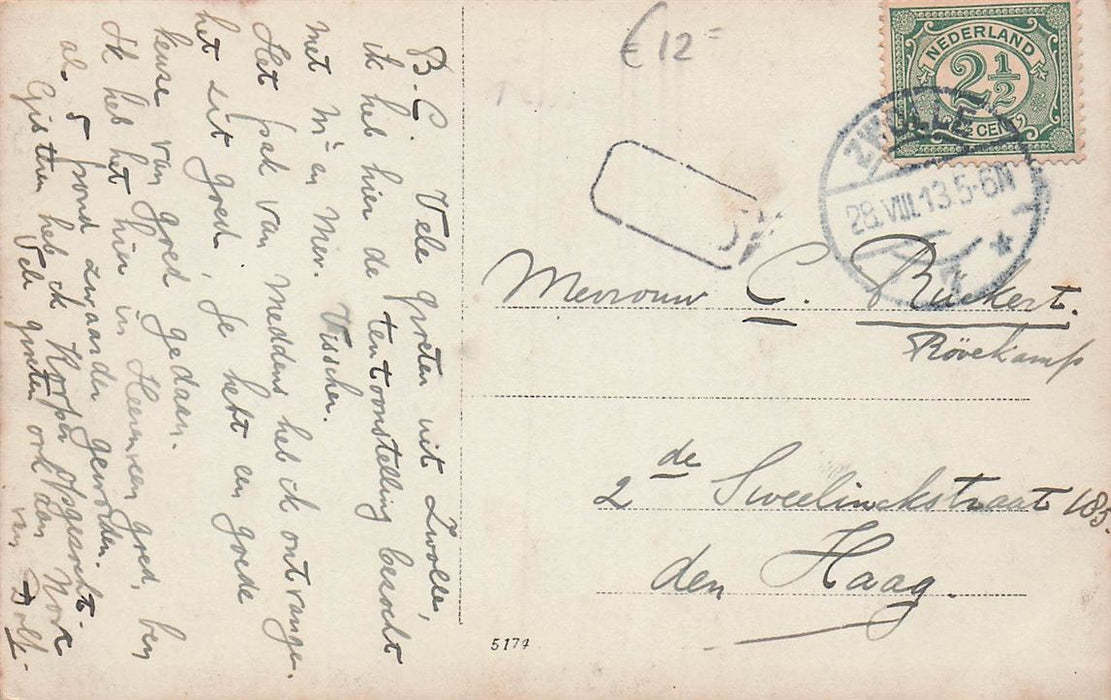 B. C. Vele groeten uit Zwolle,
ik heb hier de tentoonstelling besocht
met Mr en Mevr. Visscher.
Het pak van Meddens heb ik ontvangen,
het zit goed, je hebt en goede
keuse van goed gedaen.
Ik heb het hier in Heerenveen goed, ben
al 5 pond zwaarder geworden.
Gisteren heb ik opgezocht.
Vele groeten ook aan
van Dolf.
€ 12=
NEDERLAND
2 1/2
CENT
ZWOLLE
28.VIII.13.5-6N
7
Mevrouw C. Rückert.
Rövekamp
2de Sweelinckstraat 185.
den Haag.
5174